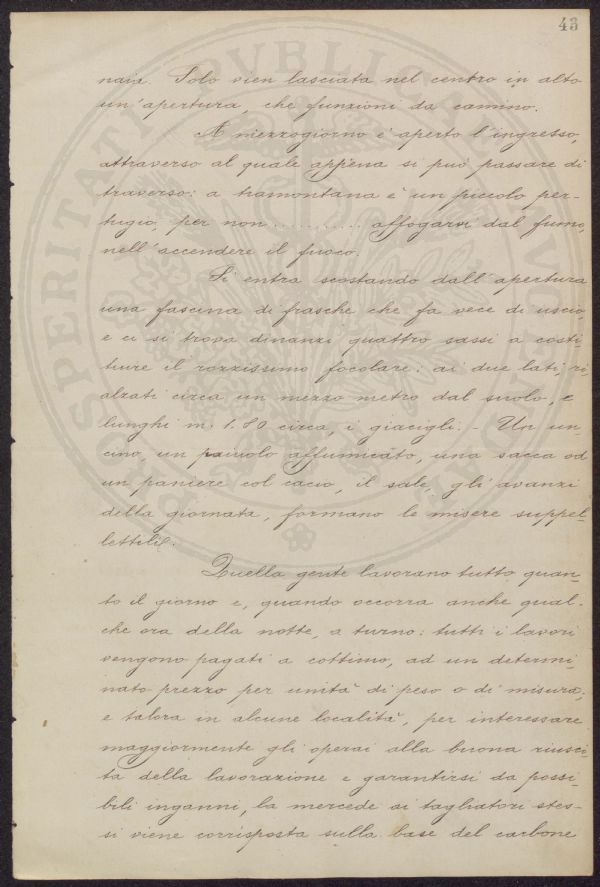 43
naia. Solo vien lasciata nel centro in alto
un'apertura, che funzioni da camino.
A mezzogiorno è aperto l'ingresso,
attraverso al quale appena si può passare di
traverso: a tramontana è un piccolo per-
tugio, per non ........... affogarvi dal fumo,
nell'accendere il fuoco.
Si entra scostando dall'apertura
una fascina di frasche che fa vece di uscio,
e ci si trova dinanzi quattro sassi a costi-
tuire il rozzissimo focolare: ai due lati, ri-
alzati circa un mezzo metro dal suolo, e
lunghi m. 1.80 circa, i giacigli. - Un un-
cino, un paiuolo affumicato, una sacca od
un paniere col cacio, il sale, gli avanzi
della giornata, formano le misere suppel-
lettili.
Quella gente lavorano tutto quan-
to il giorno e, quando occorra anche qual-
che ora della notte, a turno: tutti i lavori
vengono pagati a cottimo, ad un determi-
nato prezzo per unità di peso o di misura;
e talora in alcune località, per interessare
maggiormente gli operai alla buona riusci-
ta della lavorazione e garantirsi da possi-
bili inganni, la mercede ai tagliatori stes-
si viene corrisposta sulla base del carbone